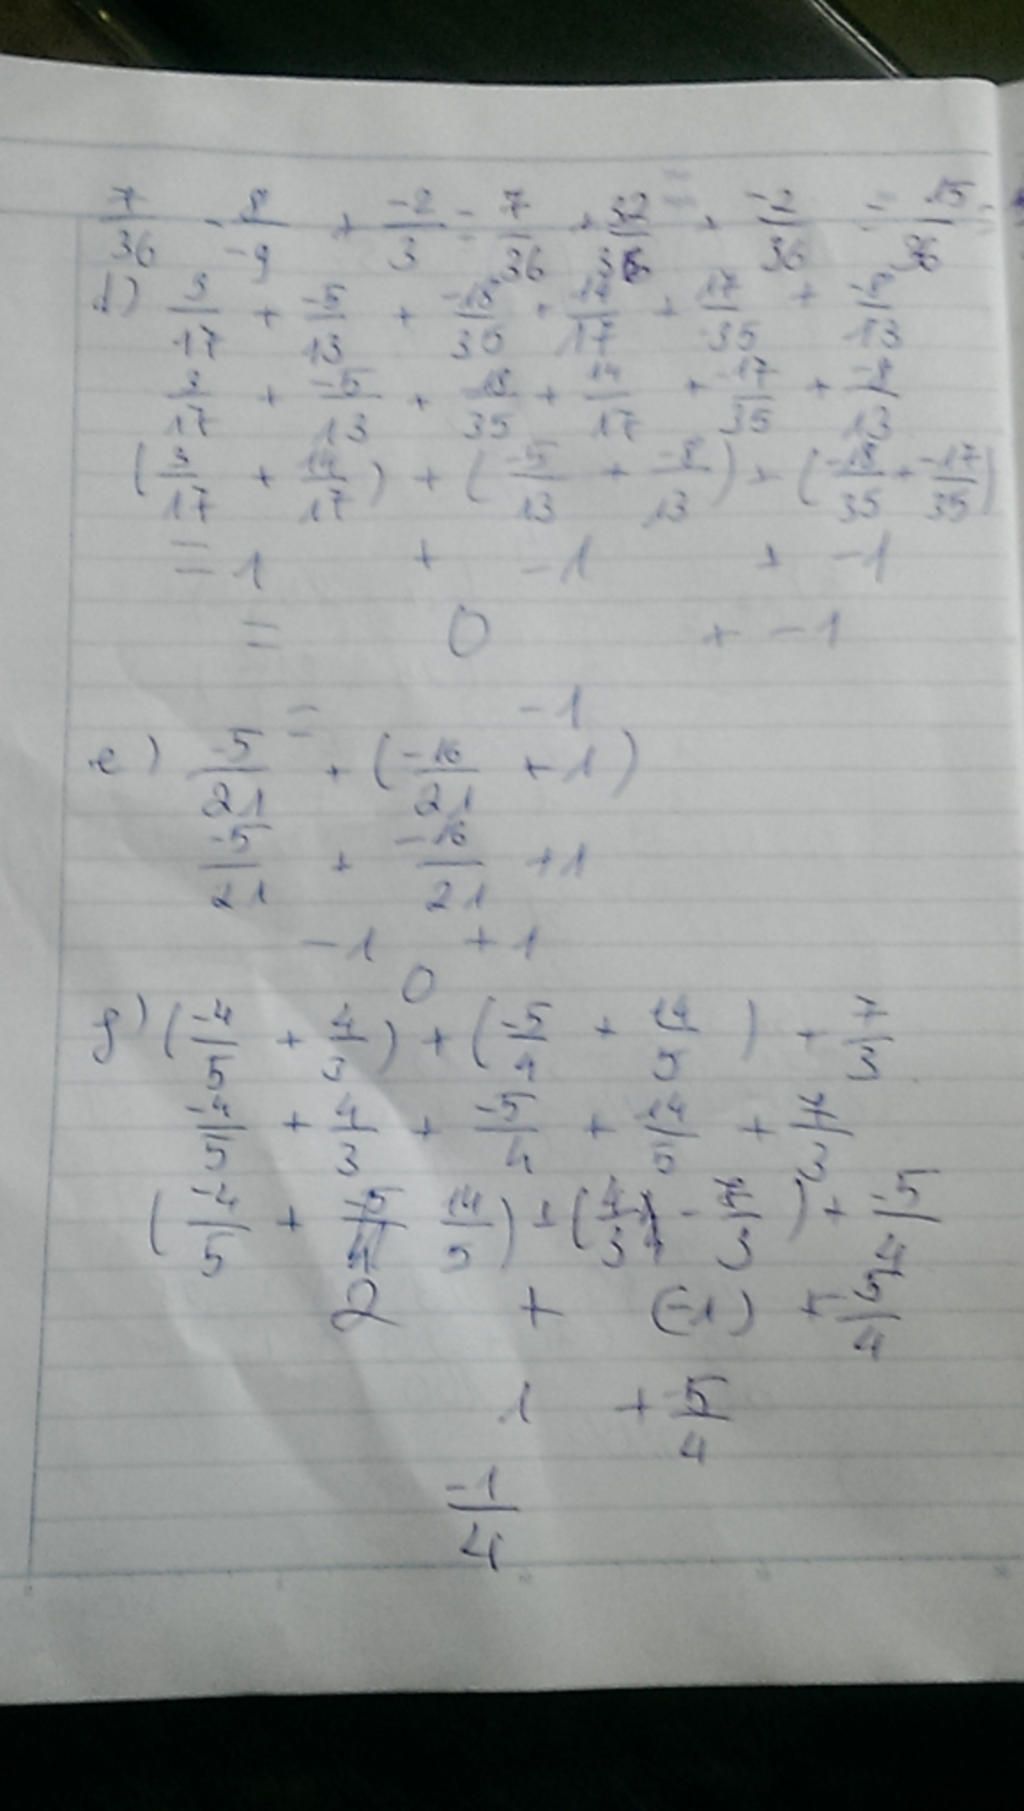 7/36 - 8/-9 + -2/3 = 7/36 + 32/36 + -2/36 = 15/36 =
d) 3/17 + -5/13 + -18/35 + 14/17 + 17/35 + -8/13
3/17 + -5/13 + -18/35 + 14/17 + -17/35 + -8/13
(3/17 + 14/17) + (-5/13 + -8/13) + (-18/35 + -17/35)
= 1 + -1 + -1
= 0 + -1
= -1
e) -5/21 + (-16/21 + 1)
-5/21 + -16/21 + 1
-1 + 1
0
f) (-4/5 + 4/3) + (-5/4 + 14/5) + 7/3
-4/5 + 4/3 + -5/4 + 14/5 + 7/3
(-4/5 + 14/5) + (4/3 - 7/3) + -5/4
2 + (-1) + -5/4
1 + -5/4
-1/4